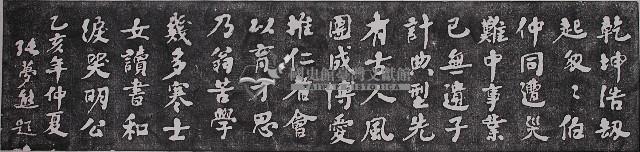 乾坤浩劫
起匆匆伯
仲同遭災
難中事業
已無遺子
計典型先
有士人風
團成博愛
推仁者會
以育才思
乃翁苦學
幾多寒士
女讀書和
淚哭明公
乙亥年仲夏
張夢熊題